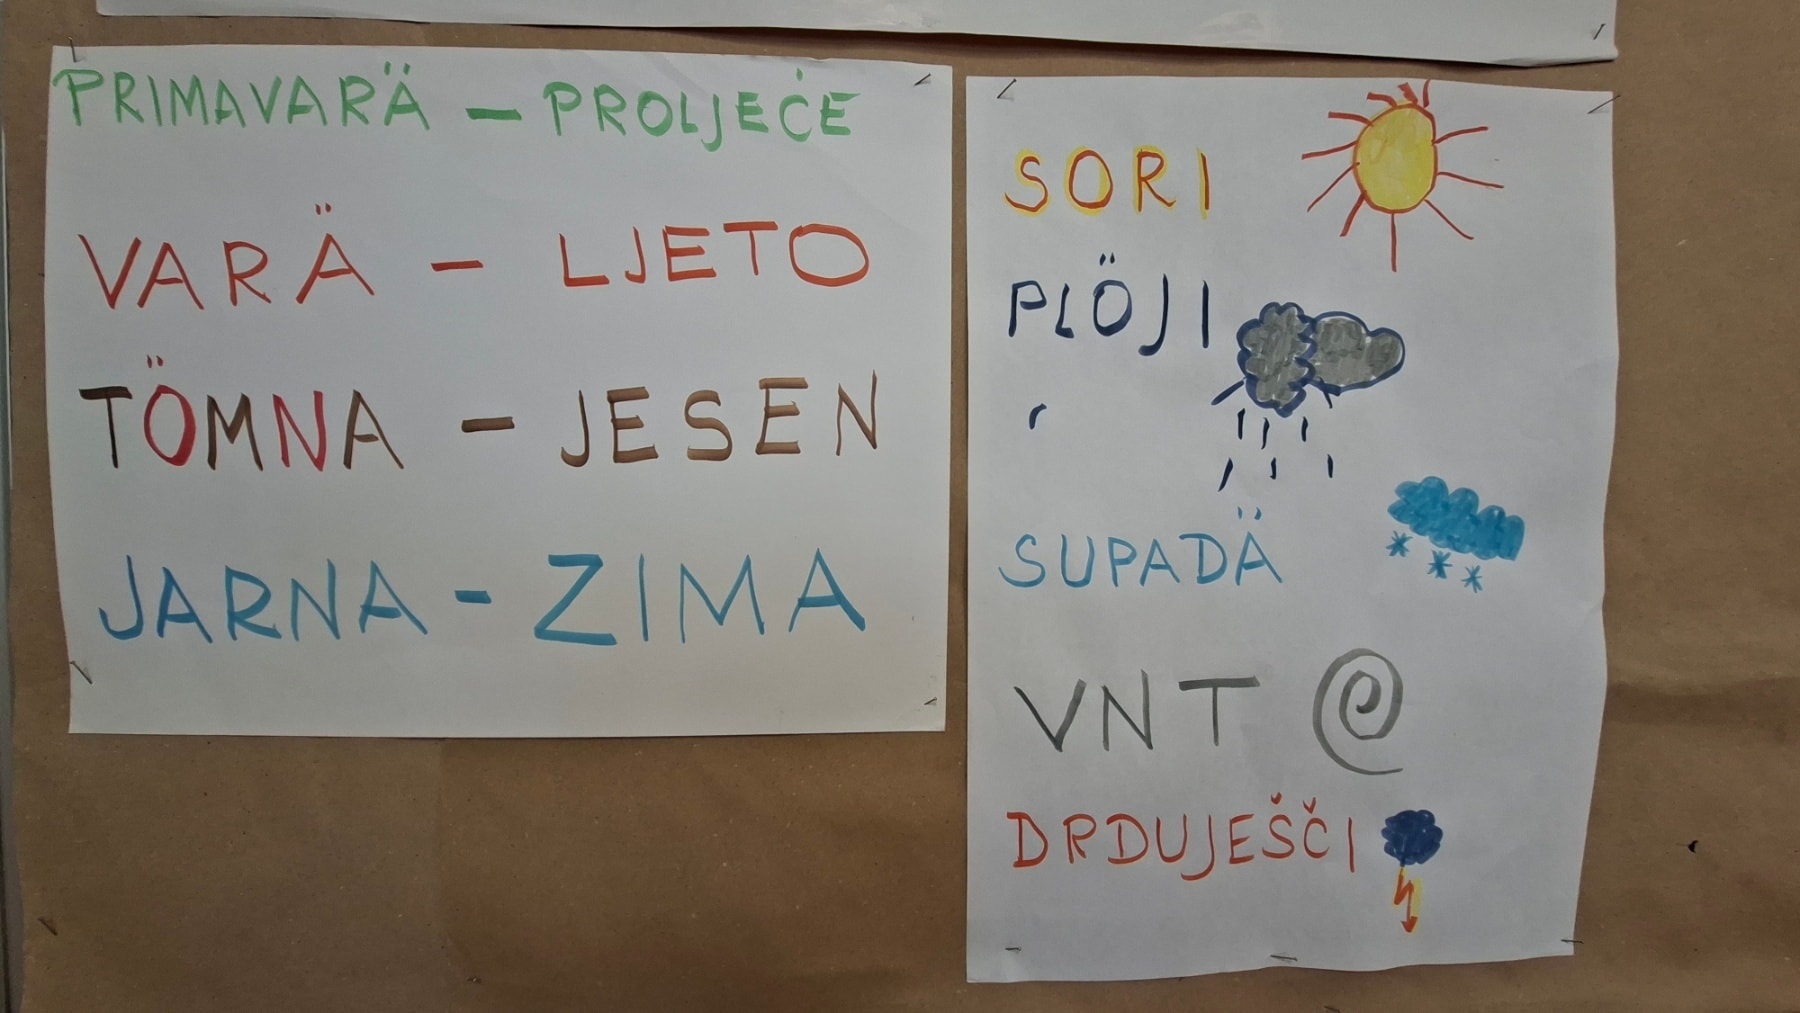 PRIMAVARÄ - PROLJEĆE
VARÄ - LJETO
TÖMNA - JESEN
JARNA - ZIMA
SORI
PLÖJI
SUPADÄ
VNT
DRDUJEŠČI